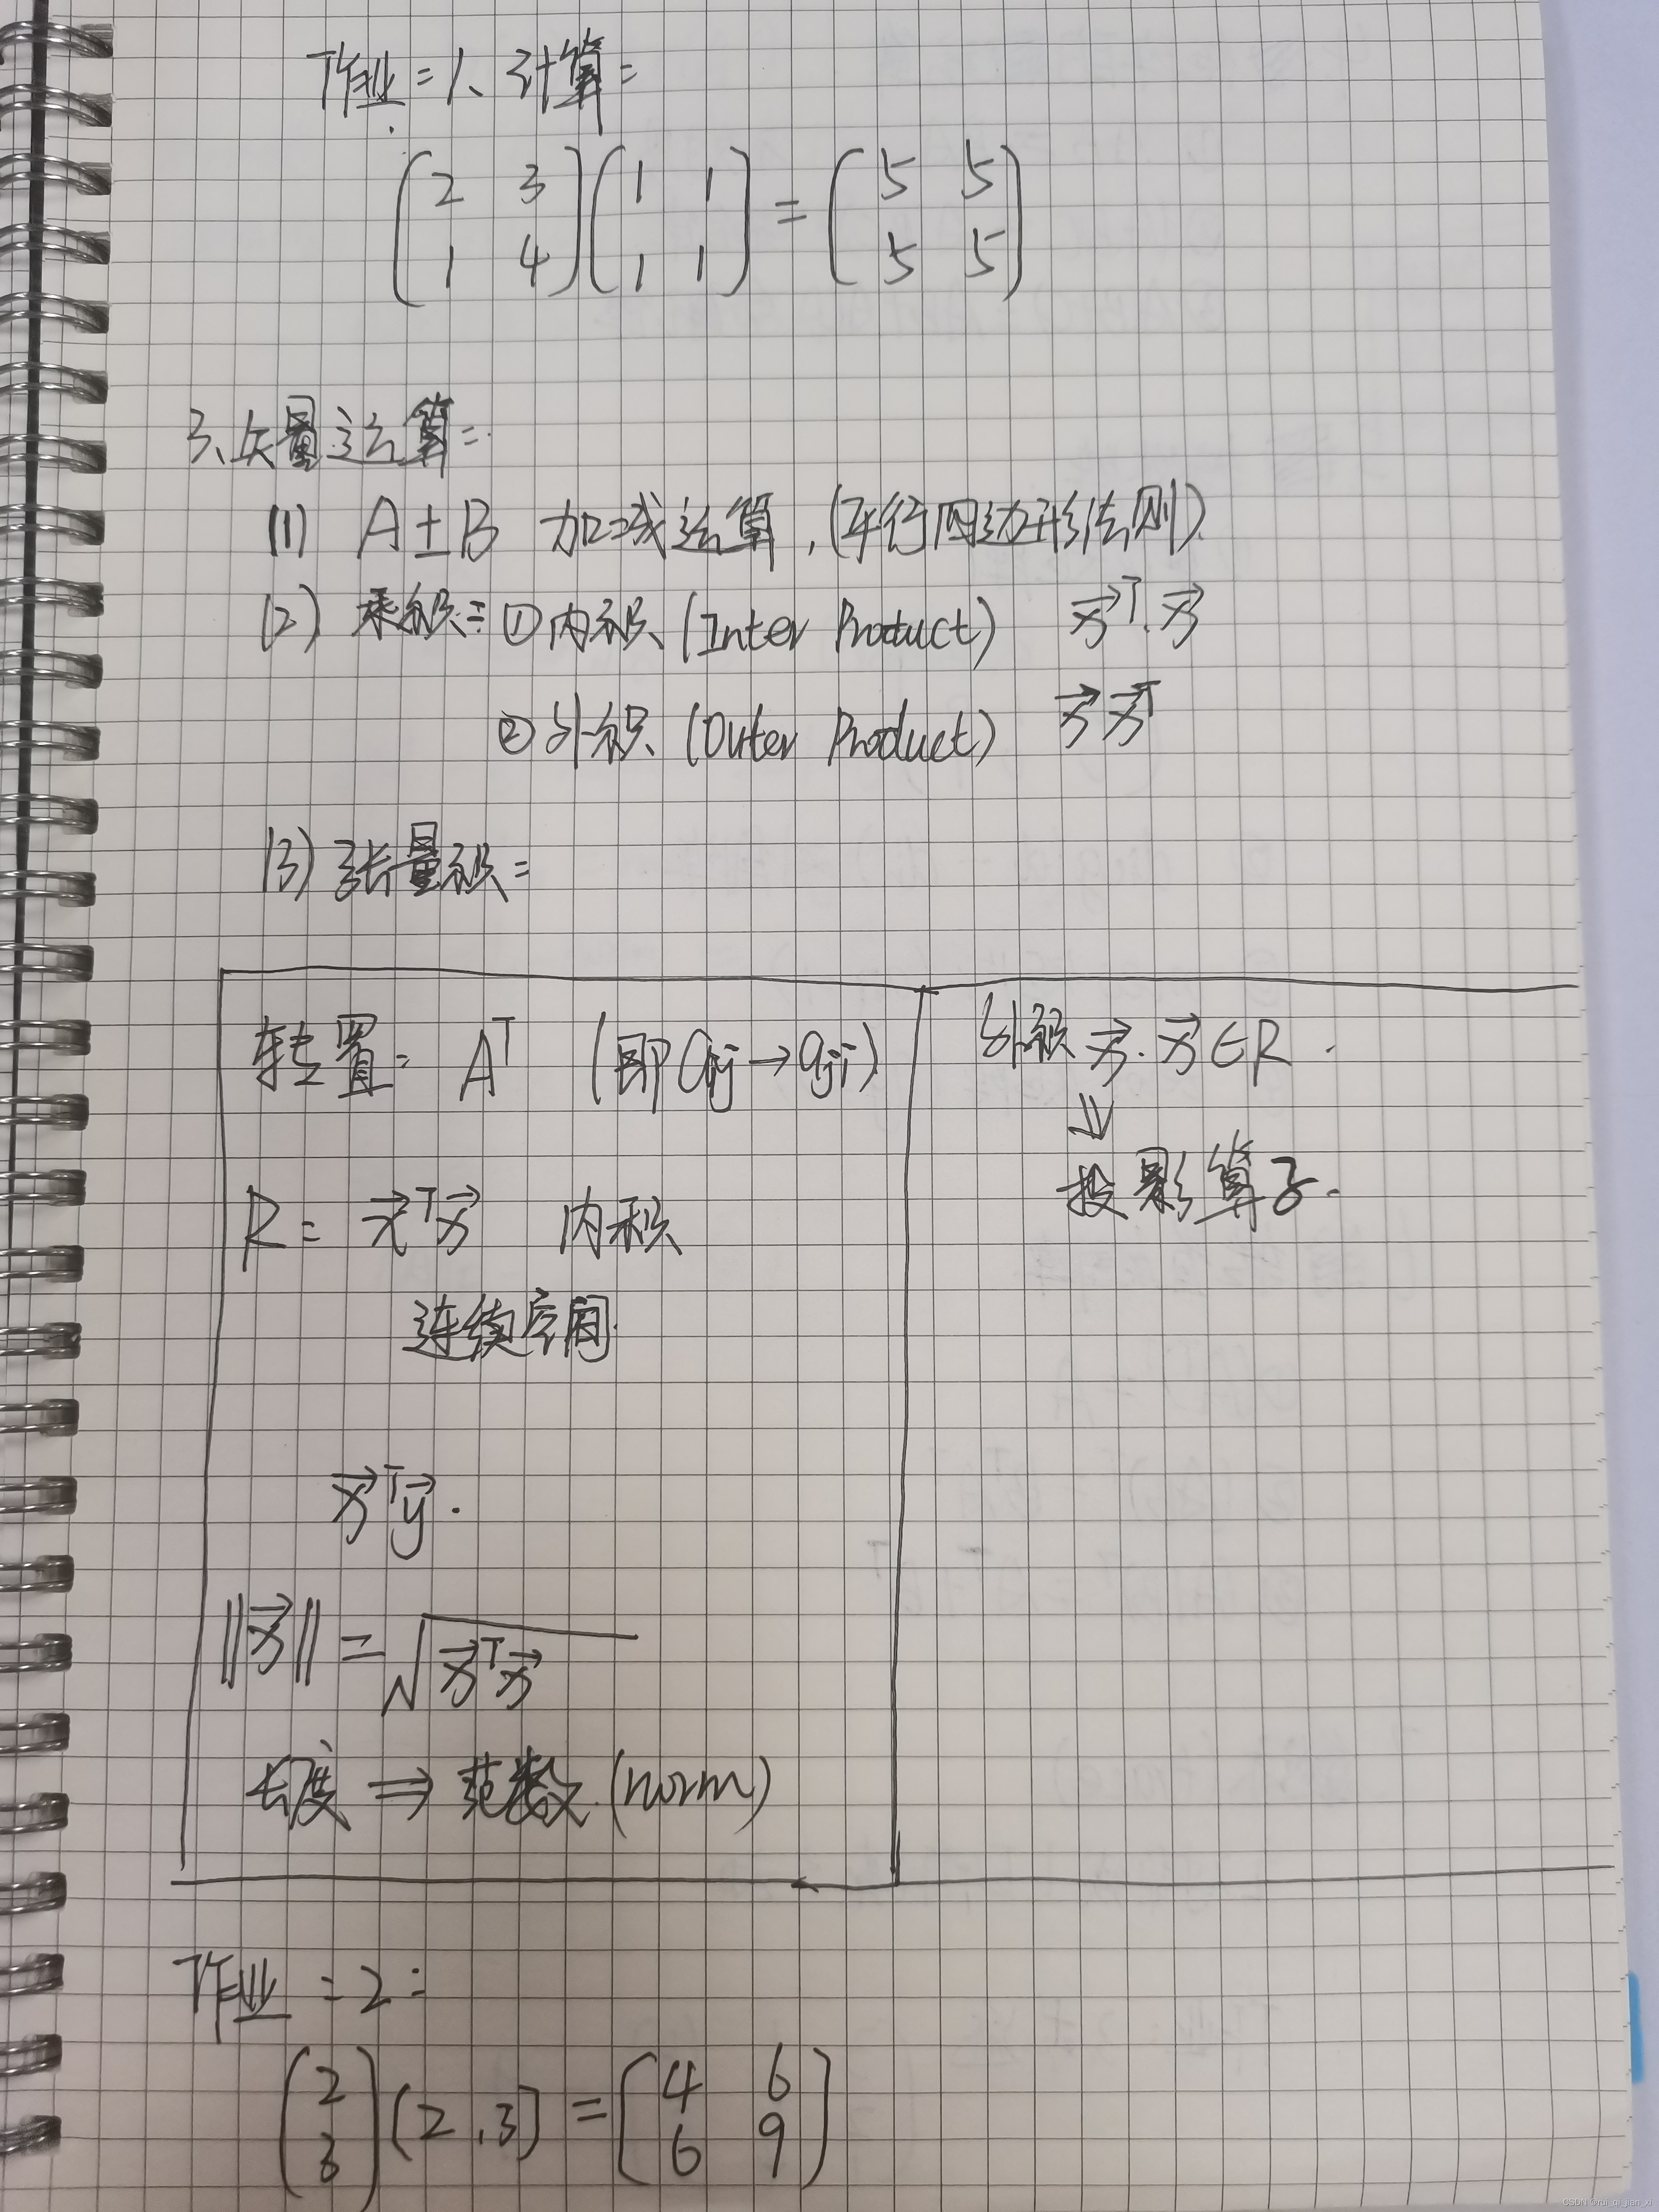 作业:1、计算:
(2 3
1 4)(1 1
1 1) = (5 5
5 5)
3、矢量运算:
(1) A±B 加减运算,(平行四边形法则)
(2) 乘积:①内积 (Inter Product) x⃗ᵀ·x⃗
②外积 (Outer Product) x⃗ x⃗ᵀ
(3) 张量积:
转置: Aᵀ (即aij→aji)
R = x⃗ᵀx⃗ 内积
连续空间.
x⃗ᵀy⃗.
||x⃗|| = √x⃗ᵀx⃗
长度 ⇒ 范数 (norm)
外积 x⃗·x⃗∈R.
⇓
投影算子.
作业:2:
(2
3)(2,3) = (4 6
6 9)
CSDN @rui_qi_jian_xi